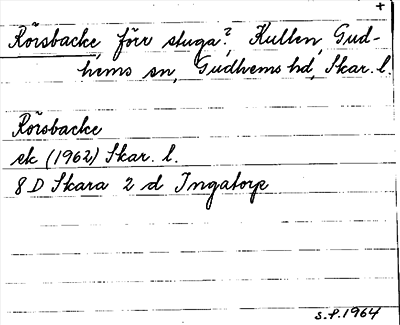 +
Rörsbacke, förr stuga? Kullen, Gud-
hems sn, Gudhems hd, Skar. l.
Rörsbacke
ek (1962) Skar. l.
8 D Skara 2 d Ingatorp
s.f. 1964